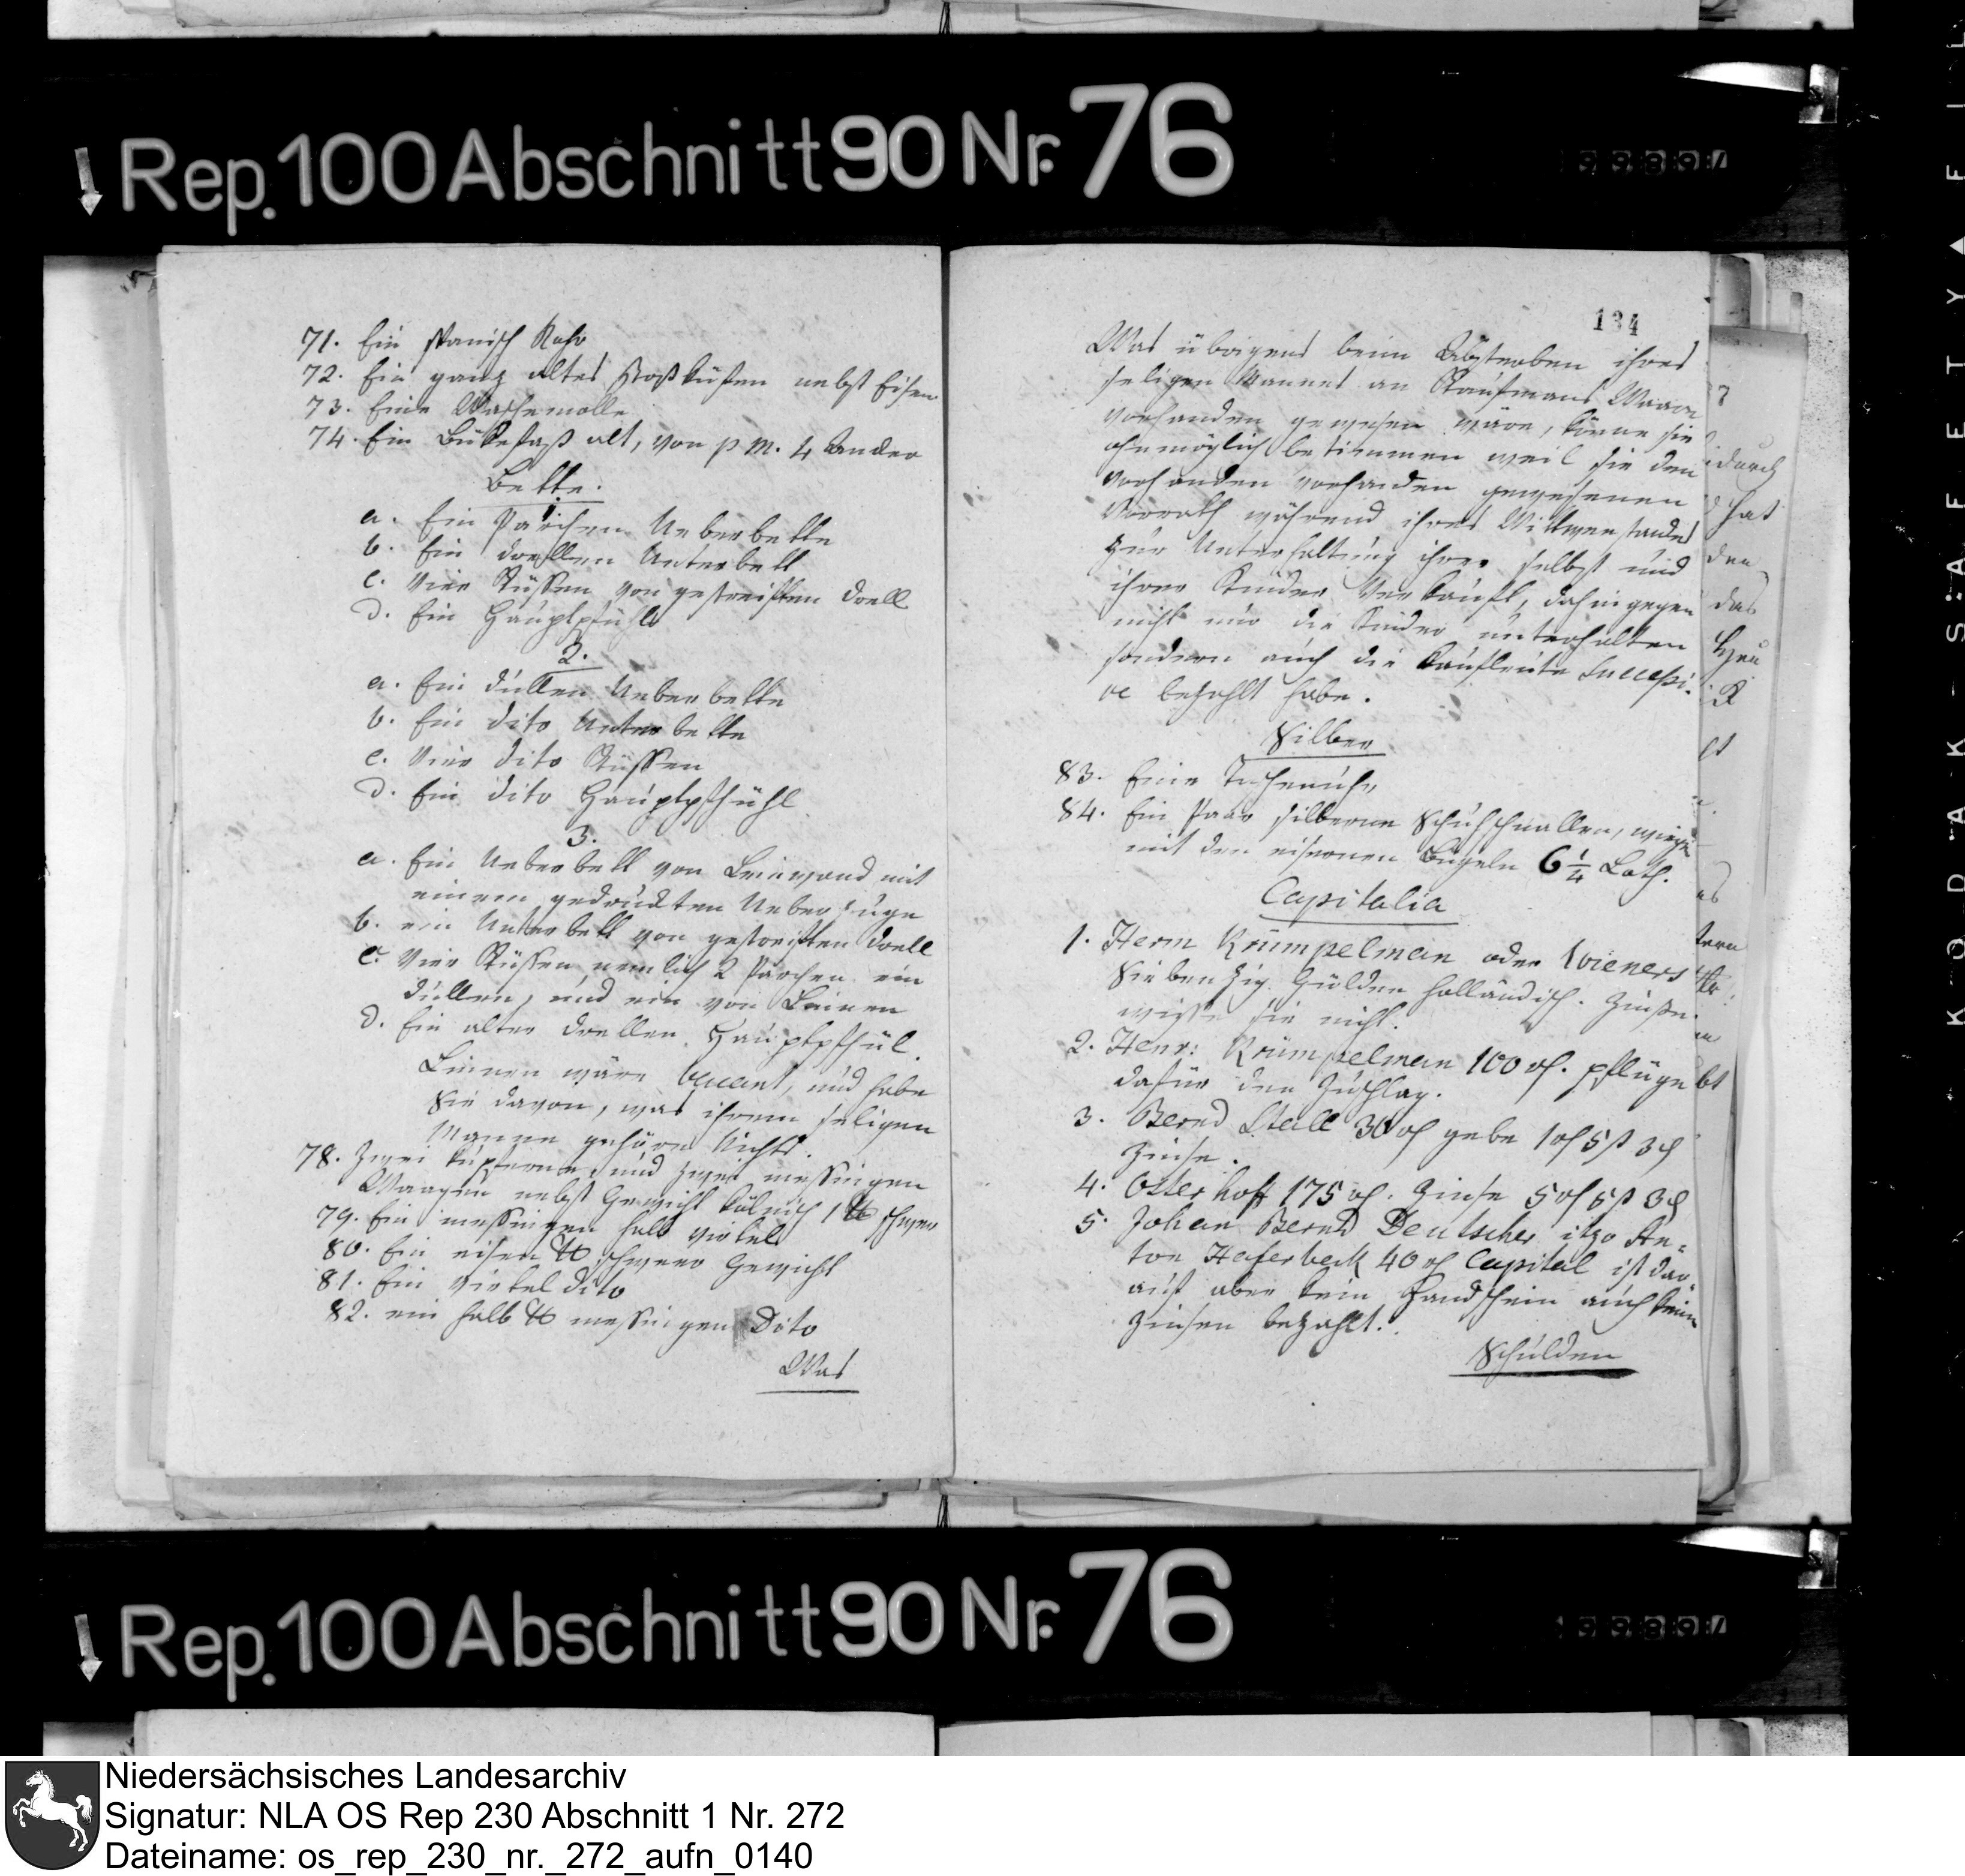 Rep. 100 Abschnitt 90 Nr. 76
71. Ein spanisch Rohr
72. Ein ganz altes nebst Eisen
73. Eine Waschemolle
74. Ein Bükefaß alt, von p. m. 4 Ander
Bette.
1.
a. Ein Parchen Ueberbette
b. Ein drellen Unterbett
c. Vier Küssen von gestreiften Drell
d. Ein Hauptpfühl
2.
a. Ein düllen Ueberbette
b. Ein dito Unterbette
c. Vier dito Küssen
d. Ein dito Hauptpfühl
3.
a. Ein Ueberbett von Leinwand mit
einem gedrückten Ueberzuge
b. ein Unterbett von gestreiften Drell
c. Vier Küssen nemlich 2 Parchen ein
düllen, und ein von Leinen
d. Ein alter drellen Hauptpfühl.
Linnen wäre vacant, und habe
Sie davon, was ihrem seligen
Manne gehöre Nichts.
78. Zwei kupferne und zwei messingen
Waagen nebst Gewicht kölnisch 1 ℔ schwer
79. Ein messingen halb viertel
80. Ein eisen ℔ schweer Gewicht
81. Ein viertel dito
82. ein halb ℔ messingen Dito
Was
134
Was übrigens beim Absterben ihres
seligen Mannes an Kaufmans Waaren
vorhanden gewesen wäre, könne sie
ohnmöglich bestimmen weil sie den
vorhanden vorhanden gewesenen
Vorrath während ihres Wittwenstandes
zur Unterhaltung ihrer selbst und
ihrer Kinder Verkauft, dahingegen
nicht nur die Kinder unterhalten
sondern auch die Kaufleute Successi-
ve bezahlt habe.
Silber
83. Eine Taschenuhr
84. Ein Paar silberne Schuhschnallen, wiegen
mit den eisernen Bügeln 6 1/4 Loth.
Capitalia
1. Herm Krümpelman oder Wieners
Siebenzig Gülden holländisch. Zinsen
wisse sie nicht.
2. Henr: Krümpelman 100 rf. pflüge
dafür den Zuschlag.
3. Bernd Stall 30 rf gebe 1 rf 5 ß 3 ₰
Zinse.
4. Osterhoff 175 rf. Zinse 5 rf 5 ß 3 ₰
5. Johan Bernd Deutscher itzo An-
ton Haferbeck 40 rf Capital ist dar-
auf aber kein Handschein auch keine
Zinsen bezahlt.
Schulden
durch
hat
den
das
Rep. 100 Abschnitt 90 Nr. 76
KODAK-SAFETY
Niedersächsisches Landesarchiv
Signatur: NLA OS Rep 230 Abschnitt 1 Nr. 272
Dateiname: os_rep_230_nr._272_aufn_0140